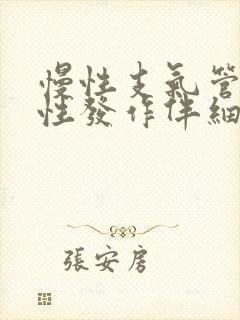 慢性支氣管
性發作伴細
張安房